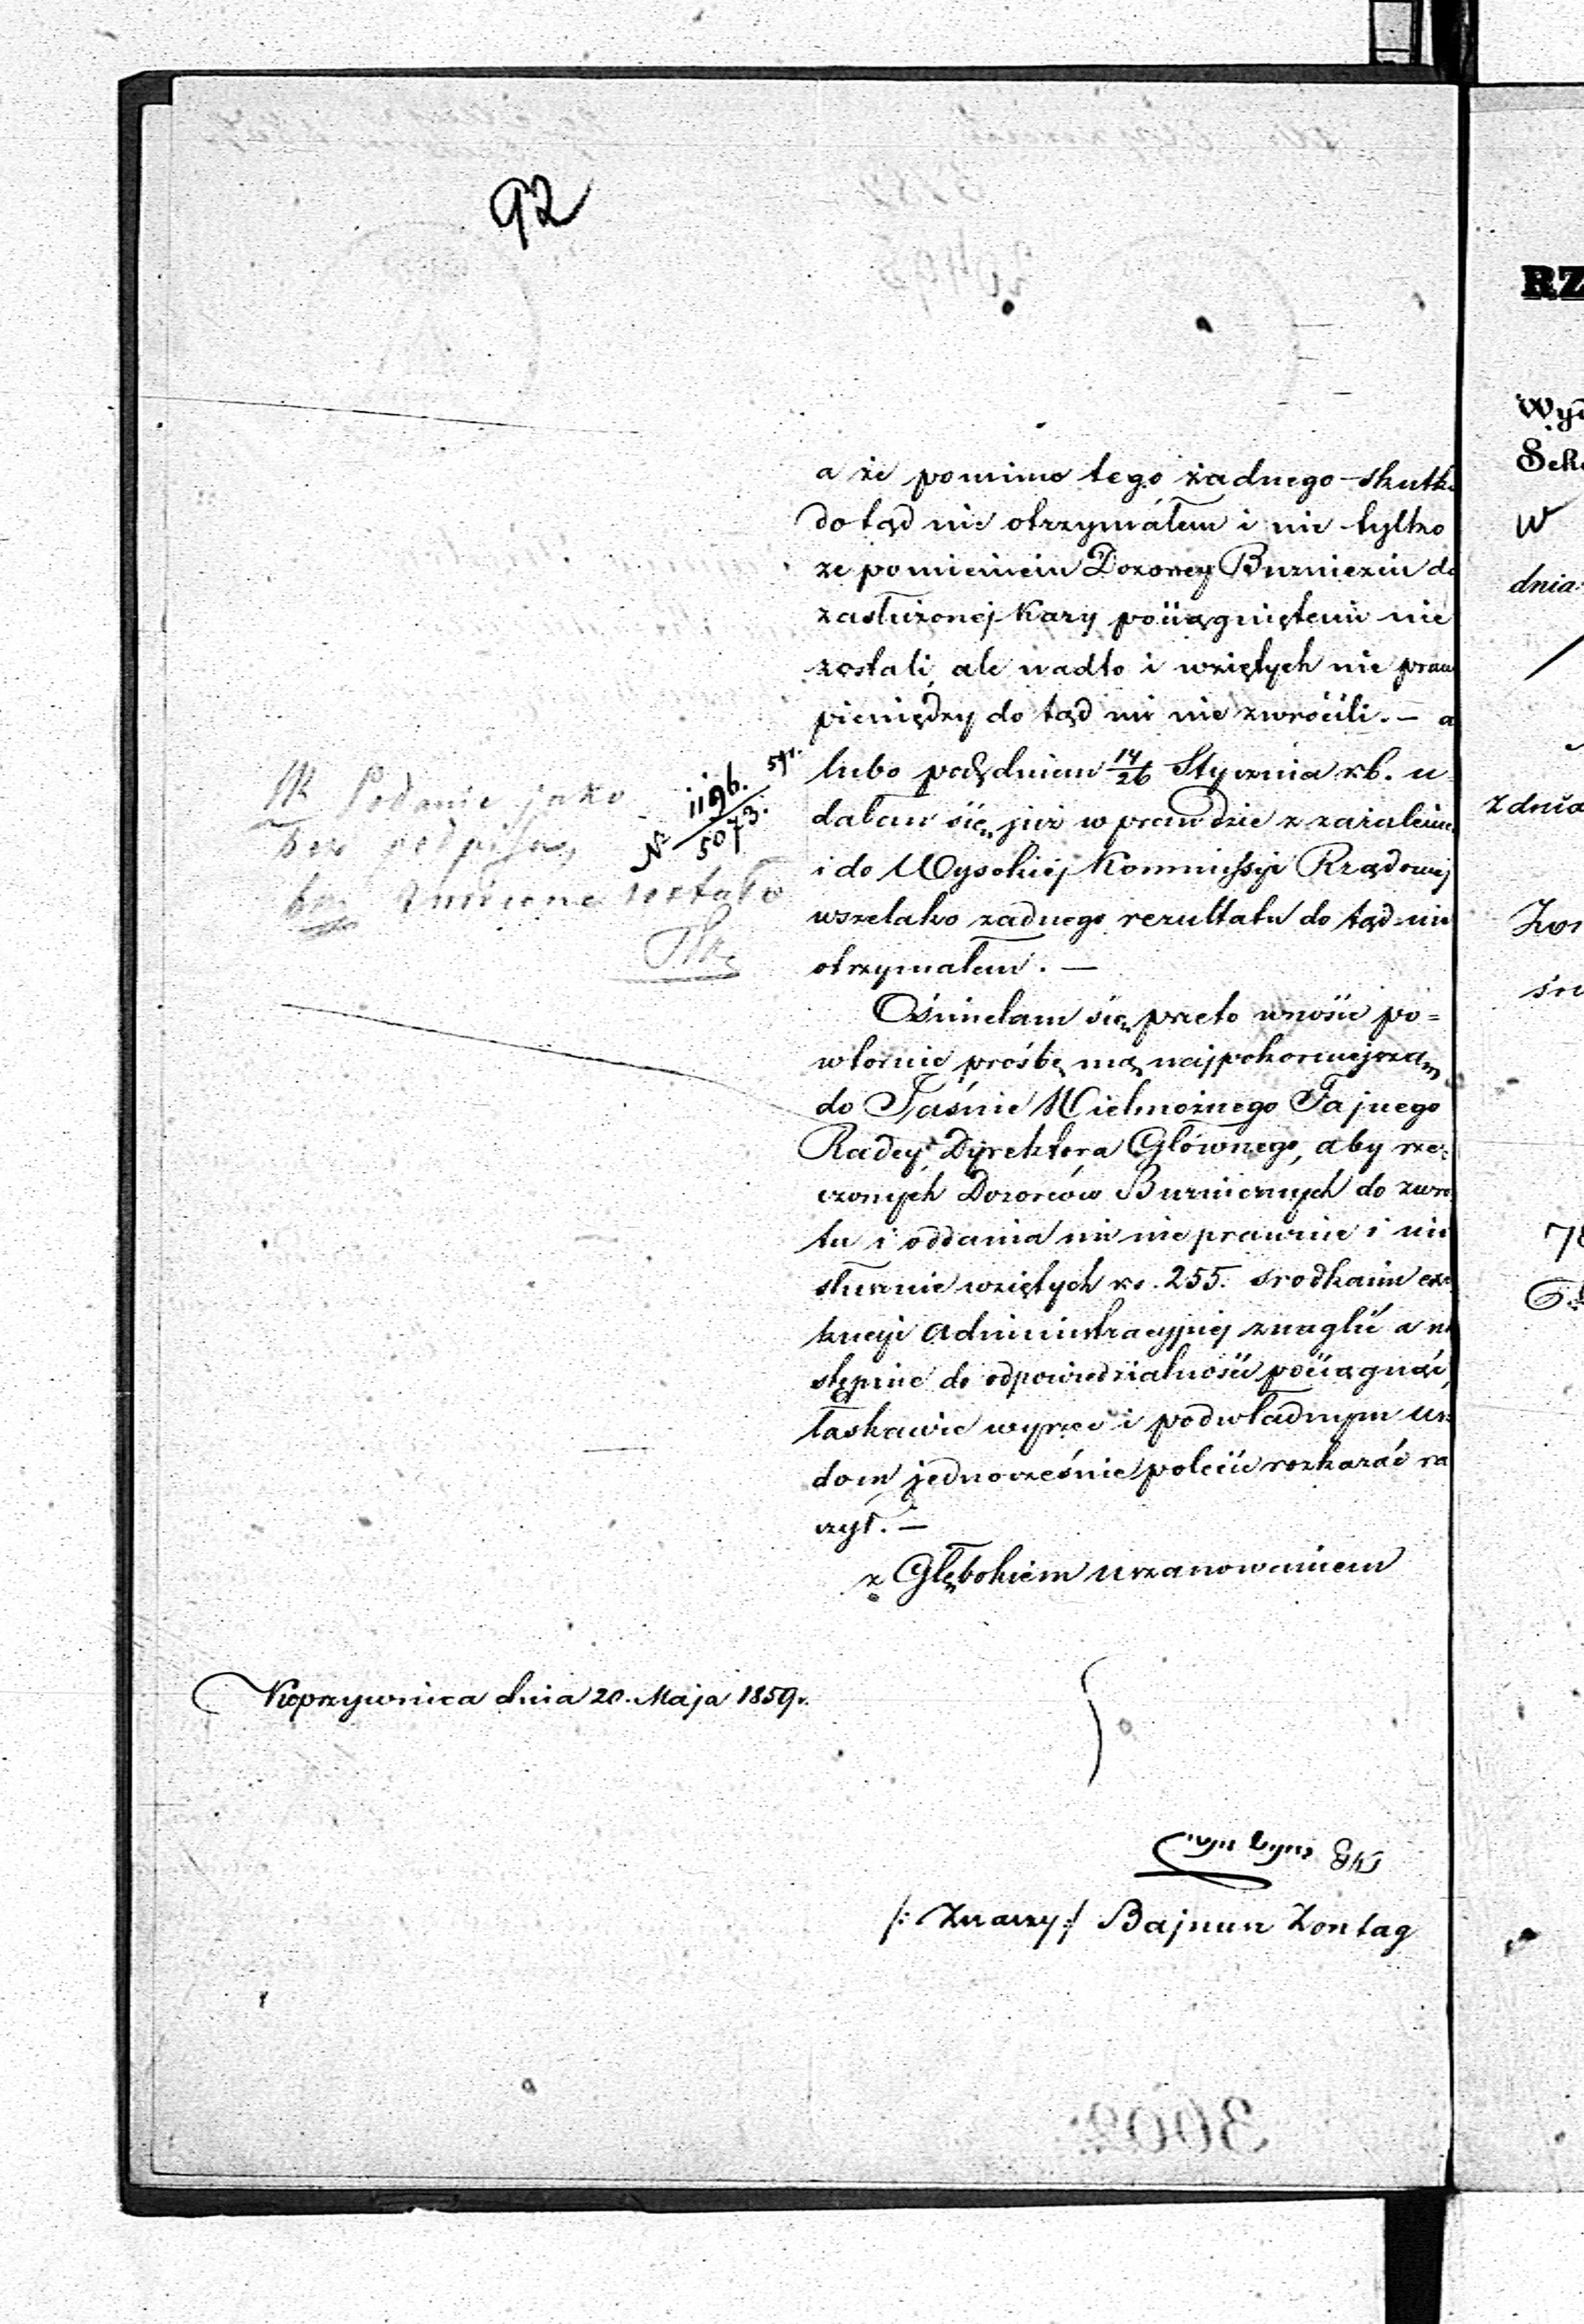 92
a że pomimo tego żadnego skutk
dotąd nie otrzymałem i nie tylko
że pomienieni Dozorcy Bużniczni do
zasłużonej kary pociągniętemi nie
zostali, ale nadto i wziętych nie praw
pieniędzy do tąd mi nie zwrócili. — a
lubo pod dniem 14/26 Stycznia rb. u
dałem się już wprawdzie z zażaleniem
i do Wysokiej Kommissyi Rządowej
wszelako żadnego rezultatu do tąd nie
otrzymałem. —
Ośmielam się przeto wnosić po=
wtornie prośbę mą najpokorniejszą
do Jaśnie Wielmożnego Tajnego
Radcy, Dyrektora Głównego, aby rze=
czonych Dozorców Bużnicznych do zwro
tu i oddania mi nieprawnie i nie
słusznie wziętych rs. 255. srodkami exe
kucyi administracyjnej znaglić a na
stępnie do odpowiedzialności pociągnąć,
łaskawie wyrzec i podwładnym urzę
dom jednocześnie polecić rozkazać ra
czył. —
z Głębokiem uszanowaniem
Podanie jako
bez podpisu,
zwrócone zostało
№ 1196.
5073.
Koprzywnica dnia 20. Maja 1859r.
/: Znaczy :/ Bajnun Zontag
3002
RZ
Wyd
Sek
w
dnia
z dnia